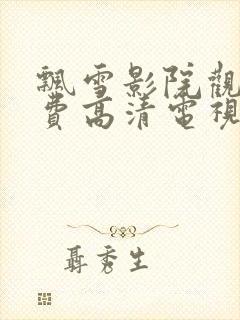 飄雪影院觀
費高清電視
聶秀生